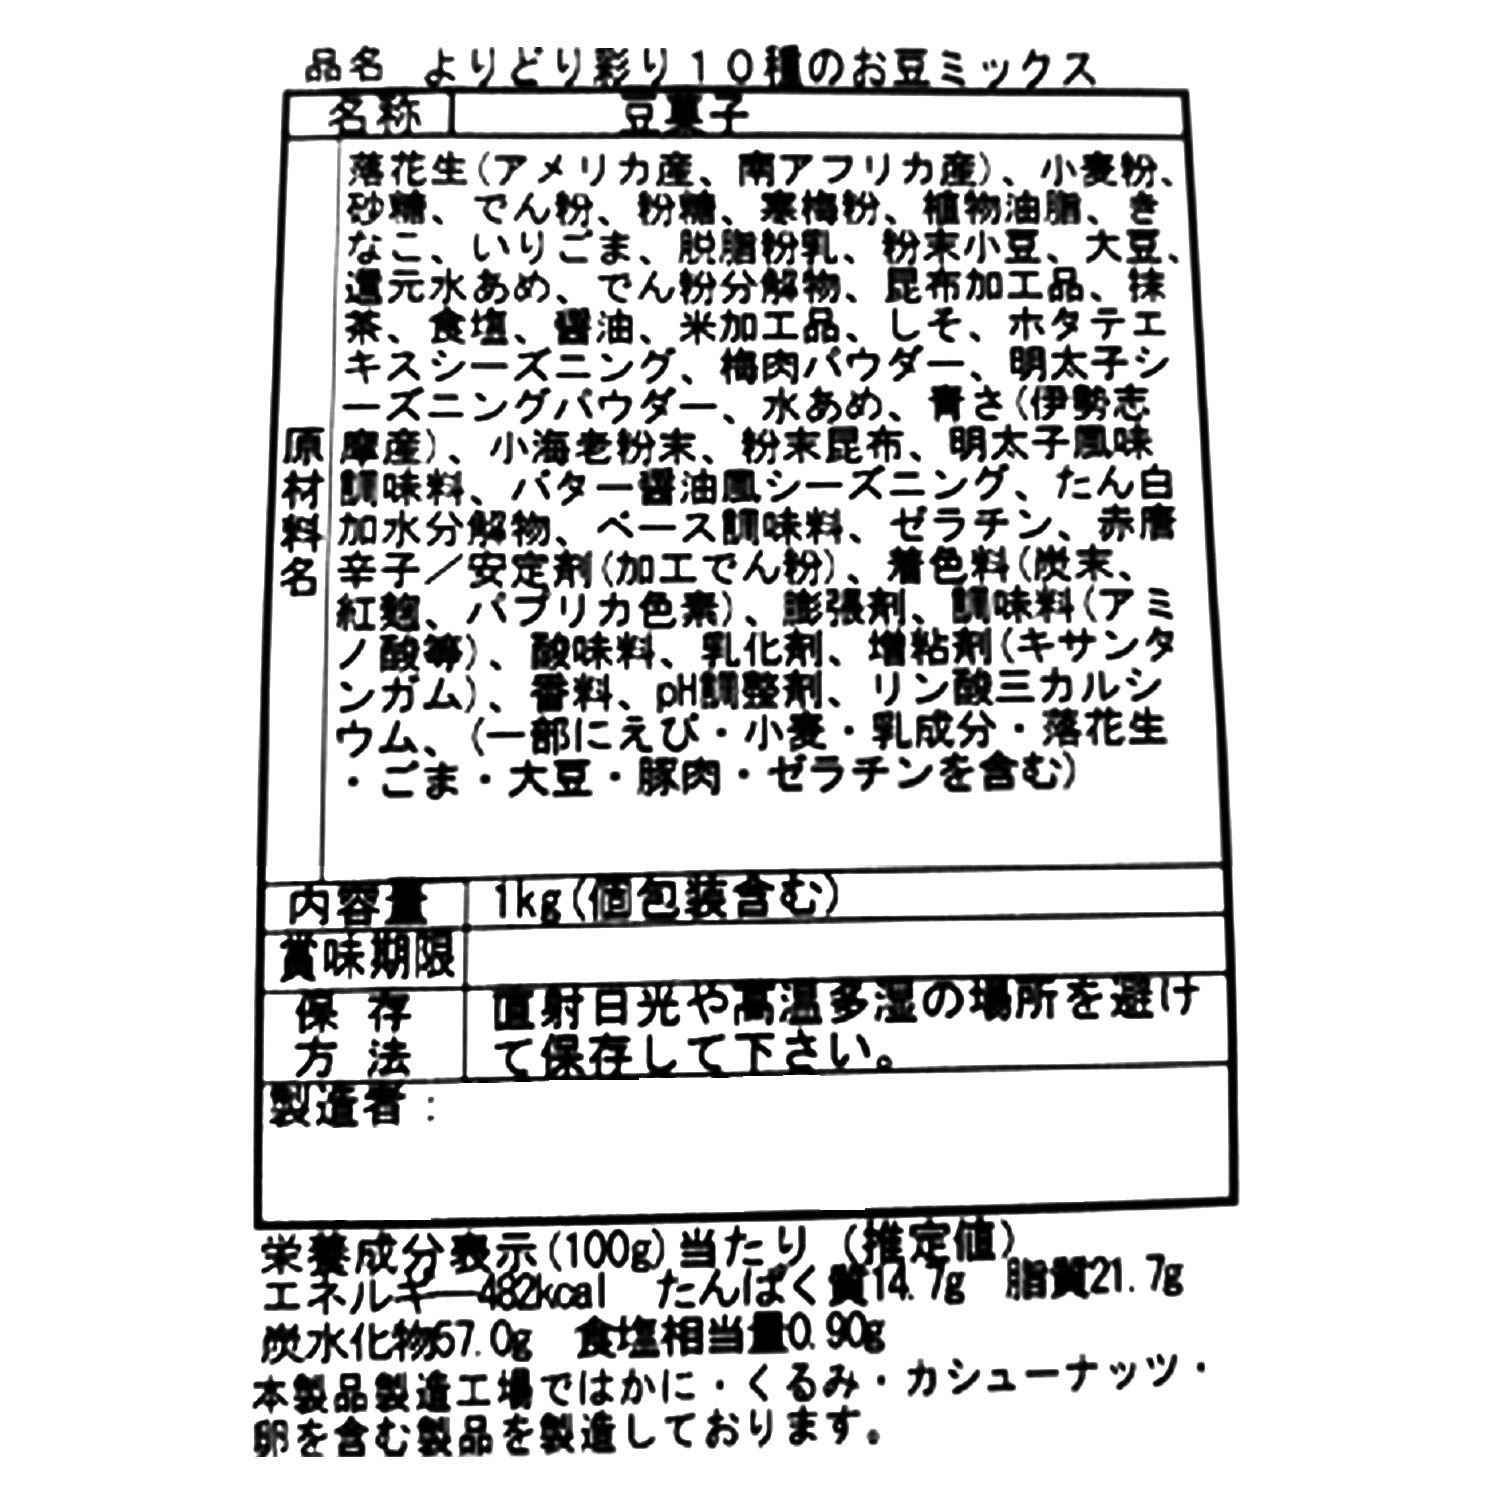 品名 よりどり彩り10種のお豆ミックス
名称 豆菓子
原材料名
落花生(アメリカ産、南アフリカ産)、小麦粉、
砂糖、でん粉、粉糖、寒梅粉、植物油脂、き
なこ、いりごま、脱脂粉乳、粉末小豆、大豆、
還元水あめ、でん粉分解物、昆布加工品、抹
茶、食塩、醤油、米加工品、しそ、ホタテエ
キスシーズニング、梅肉パウダー、明太子シ
ーズニングパウダー、水あめ、青さ(伊勢志
摩産)、小海老粉末、粉末昆布、明太子風味
調味料、バター醤油風シーズニング、たん白
加水分解物、ベース調味料、ゼラチン、赤唐
辛子／安定剤(加工でん粉)、着色料(炭末、
紅麹、パプリカ色素)、膨張剤、調味料(アミ
ノ酸等)、酸味料、乳化剤、増粘剤(キサンタ
ンガム)、香料、pH調整剤、リン酸三カルシ
ウム、(一部にえび・小麦・乳成分・落花生
・ごま・大豆・豚肉・ゼラチンを含む)
内容量 1kg(個包装含む)
賞味期限
保存方法 直射日光や高温多湿の場所を避け
て保存して下さい。
製造者：
栄養成分表示(100g)当たり (推定値)
エネルギー482kcal たんぱく質14.7g 脂質21.7g
炭水化物57.0g 食塩相当量0.90g
本製品製造工場ではかに・くるみ・カシューナッツ・
卵を含む製品を製造しております。